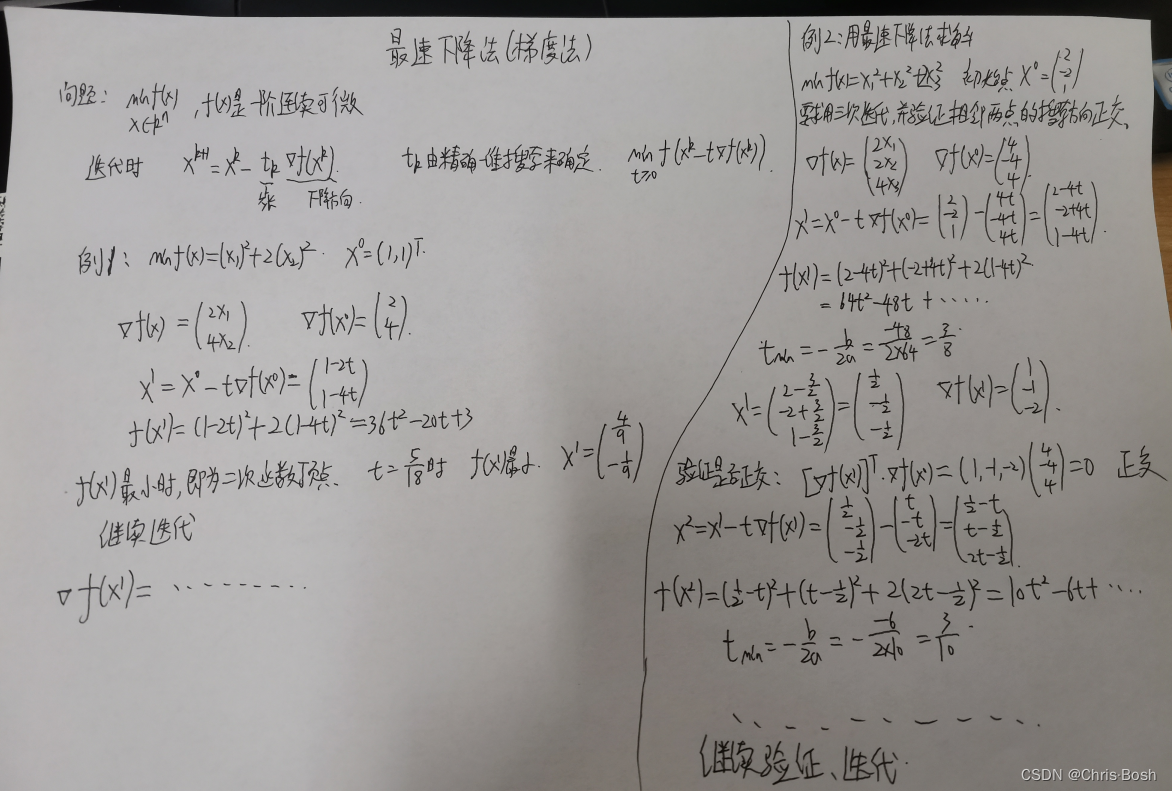 最速下降法(梯度法)
问题: min f(x) , f(x)是一阶连续可微
x∈Rⁿ
迭代时 x^{k+1}=x^k - t_k ∇f(x^k). t_k由精确一维搜索来确定. min_{t≥0} f(x^k-t∇f(x^k)).
步长 下降方向.
例1: min f(x)=(x₁)²+2(x₂)². x⁰=(1,1)ᵀ.
∇f(x) = (2x₁ 4x₂). ∇f(x⁰)=(2 4).
x¹=x⁰-t∇f(x⁰)=(1-2t 1-4t)
f(x¹)=(1-2t)²+2(1-4t)²=36t²-20t+3
f(x¹)最小时,即为二次函数顶点. t=5/18时 f(x¹)最小. x¹=(4/9 -1/9)
继续迭代
∇f(x¹)= ………
例2:用最速下降法求解
min f(x)=x₁²+x₂²+2x₃² 初始点 x⁰=(2 -2 1)
要求用三次迭代,并验证相邻两点的搜索方向正交.
∇f(x)=(2x₁ 2x₂ 4x₃) ∇f(x⁰)=(4 -4 4)
x¹=x⁰-t∇f(x⁰)=(2 -2 1)-(4t -4t 4t)=(2-4t -2+4t 1-4t).
f(x¹)=(2-4t)²+(-2+4t)²+2(1-4t)²
=64t²-48t+……
t_min=-b/2a=-48/2×64=3/8.
x¹=(2-3/2 -2+3/2 1-3/2)=(1/2 -1/2 -1/2) ∇f(x¹)=(1 -1 -2).
验证是否正交: [∇f(x¹)]ᵀ·∇f(x¹)=(1,-1,-2)(4 -4 4)=0 正交
x²=x¹-t∇f(x¹)=(1/2 -1/2 -1/2)-(t -t -2t)=(1/2-t t-1/2 2t-1/2)
f(x²)=(1/2-t)²+(t-1/2)²+2(2t-1/2)²=10t²-6t+……
t_min=-b/2a=-(-6)/2×10=3/10.
………
继续验证、迭代.
CSDN @Chris·Bosh